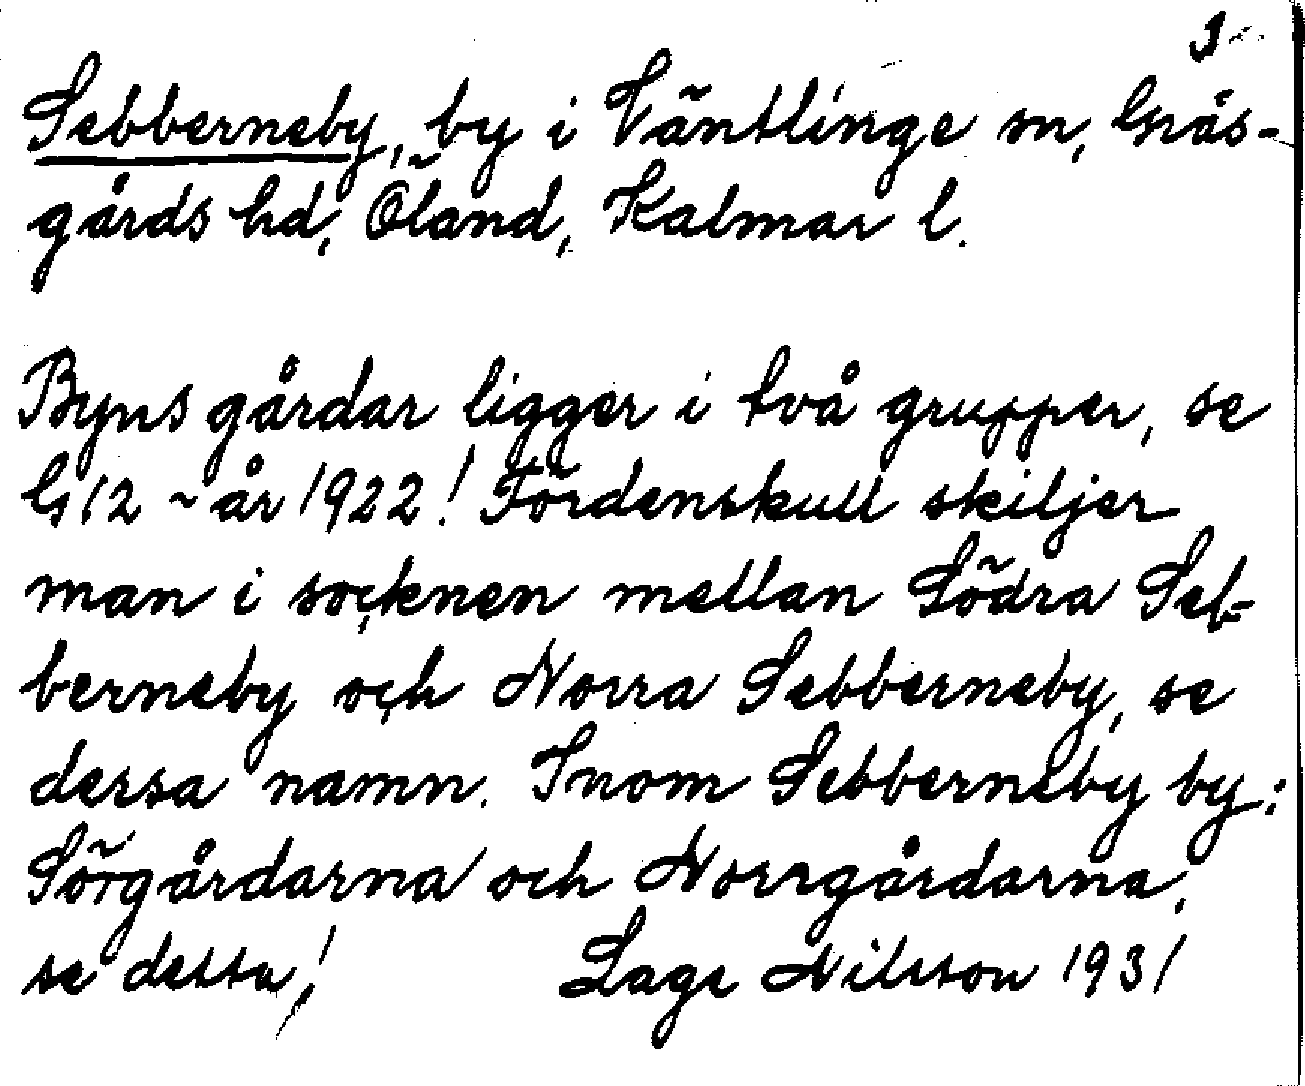 3
Sebberneby, by i Väntlinge sn, Gräs-
gårds hd, Öland, Kalmar l.
Byns gårdar ligger i två grupper, se
G 12 ~ år 1922! Fördenskull skiljer
man i socknen mellan Södra Seb-
berneby och Norra Sebberneby, se
dessa namn. Inom Sebberneby by:
Sörgårdarna och Norrgårdarna,
se dessa! Lage Nilsson 1931